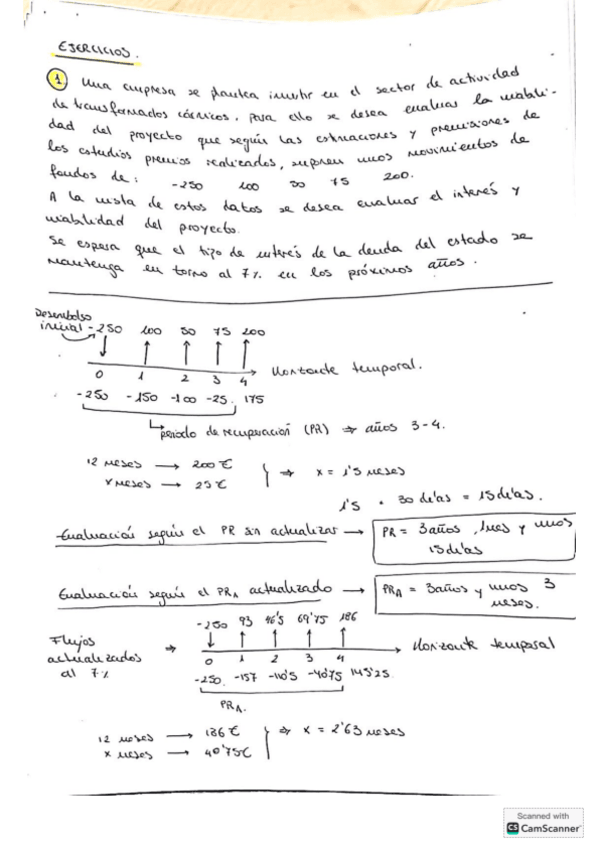 EJERCICIOS.
1 Una empresa se plantea invertir en el sector de actividad
de transformados cárnicos, para ello se desea evaluar la viabili-
dad del proyecto que según las estimaciones y previsiones de
los estudios previos realizados, suponen unos movimientos de
fondos de: -250 100 50 75 200.
A la vista de estos datos se desea evaluar el interés y
viabilidad del proyecto.
Se espera que el tipo de interés de la deuda del estado se
mantenga en torno al 7% en los próximos años.
Desembolso
inicial -250 100 50 75 200
0 1 2 3 4 Horizonte temporal.
-250 -150 -100 -25. 175
periodo de recuperación (PR) ⇒ años 3-4.
12 meses → 200€
x meses → 25€ } ⇒ x = 1'5 meses
1'5 · 30 días = 15 días.
Evaluación según el PR sin actualizar → PR = 3 años, 1 mes y unos
15 días
Evaluación según el PRA actualizado → PRA = 3 años y unos 3
meses.
-250 93 46'5 69'75 186
Flujos
actualizados
al 7% ⇒ 0 1 2 3 4 Horizonte temporal
-250. -157 -110'5 -40'75 145'25
PRA.
12 meses → 186€
x meses → 40'75€ } ⇒ x = 2'63 meses
Scanned with
CS CamScanner